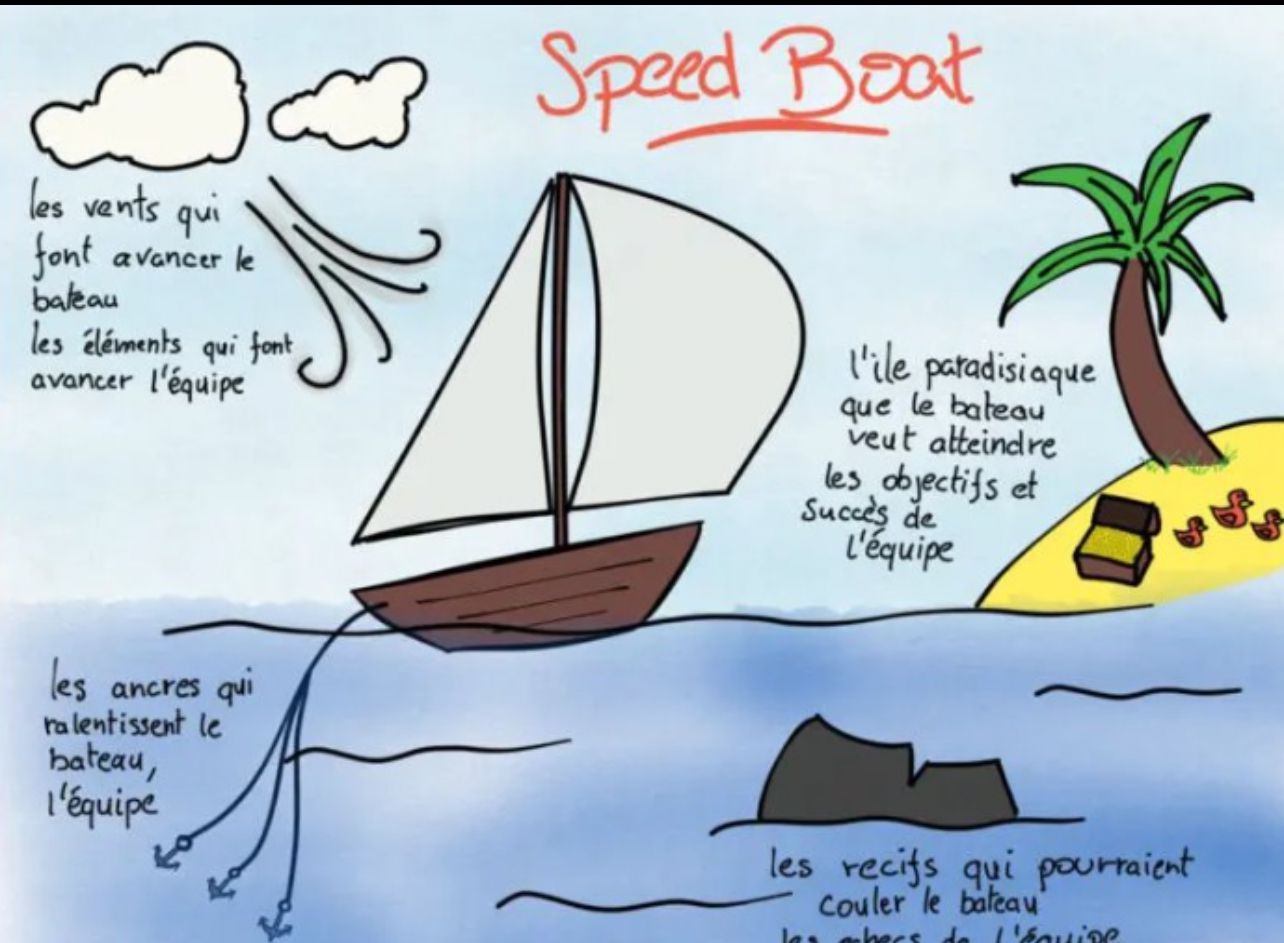 Speed Boat
les vents qui
font avancer le
bateau
les éléments qui font
avancer l'équipe
l'ile paradisiaque
que le bateau
veut atteindre
les objectifs et
succès de
l'équipe
les ancres qui
ralentissent le
bateau,
l'équipe
les recifs qui pourraient
couler le bateau
les echecs de l'équipe